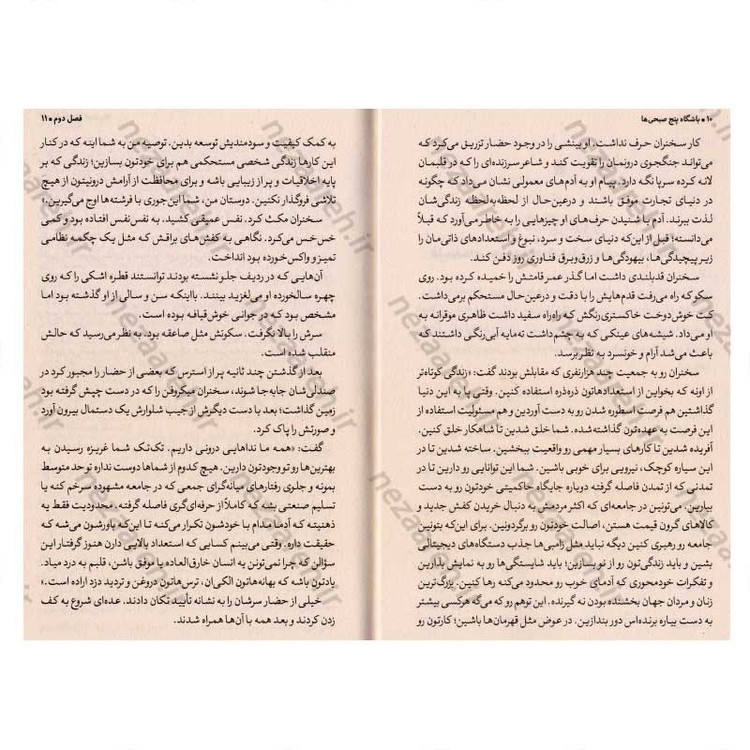 ۱۰ ▪ باشگاه پنج صبحی‌ها
کار سخنران حرف نداشت. او بینشی را در وجود حضار تزریق می‌کرد که
می‌تواند جنگجوی درونمان را تقویت کند و شاعر سرزنده‌ای را که در قلبمان
لانه کرده سرپا نگه دارد. پیام او به آدم‌های معمولی نشان می‌داد که چگونه
در دنیای تجارت موفق باشند و درعین‌حال از لحظه‌به‌لحظه زندگی‌شان
لذت ببرند. آدم با شنیدن حرف‌های او چیزهایی را به خاطر می‌آورد که قبلاً
می‌دانسته؛ قبل از این‌که دنیای سخت و سرد، نبوغ و استعدادهای ذاتی‌مان را
زیر پیچیدگی‌ها، بیهودگی‌ها و زرق‌وبرق فناوری روز دفن کند.
سخنران قدبلندی داشت اما گذر عمر قامتش را خمیده کرده بود. روی
سکو که راه می‌رفت قدم‌هایش را با دقت و درعین‌حال مستحکم برمی‌داشت.
کت خوش‌دوخت خاکستری‌رنگش که راه‌راه سفید داشت ظاهری موقرانه به
او می‌داد. شیشه‌های عینکی که به چشم داشت ته‌مایه آبی‌رنگی داشتند که
باعث می‌شد آرام و خونسرد به نظر برسد.
سخنران رو به جمعیت چند هزارنفری که مقابلش بودند گفت: «زندگی کوتاه‌تر
از اونه که بخواین از استعدادهاتون ذره‌ذره استفاده کنین. وقتی پا به این دنیا
گذاشتین هم فرصت اسطوره شدن رو به دست آوردین و هم مسئولیت استفاده از
این فرصت به عهده‌تون گذاشته شده. شما خلق شدین تا شاهکار خلق کنین.
آفریده شدین تا کارهای بسیار مهمی رو واقعیت ببخشین. ساخته شدین تا در
این سیاره کوچک، نیرویی برای خوبی باشین. شما این توانایی رو دارین تا در
تمدنی که از تمدن فاصله گرفته دوباره جایگاه حاکمیتی خودتون رو به دست
بیارین. می‌تونین در جامعه‌ای که اکثر مردمش به دنبال خریدن کفش جدید و
کالاهای گرون قیمت هستن، اصالت خودتون رو برگردونین. برای این‌که بتونین
جامعه رو رهبری کنین دیگه نباید مثل زامبی‌ها جذب دستگاه‌های دیجیتالی
بشین و باید زندگی‌تون رو از نو بسازین؛ باید شایستگی‌ها رو به نمایش بذارین
و تفکرات خودمحوری که آدمای خوب رو محدود می‌کنه رها کنین. بزرگ‌ترین
زنان و مردان جهان بخشنده بودن نه گیرنده. این توهم رو که می‌گه هرکسی بیشتر
به دست بیاره برنده‌اس دور بندازین. در عوض مثل قهرمان‌ها باشین؛ کارتون رو
فصل دوم ▪ ۱۱
به کمک کیفیت و سودمندیش توسعه بدین. توصیه من به شما اینه که در کنار
این کارها زندگی شخصی مستحکمی هم برای خودتون بسازین؛ زندگی که بر
پایه اخلاقیات و پر از زیبایی باشه و برای محافظت از آرامش درونیتون از هیچ
تلاشی فروگذار نکنین. دوستان من، شما این‌جوری با فرشته‌ها اوج می‌گیرین.»
سخنران مکث کرد. نفس عمیقی کشید. به نفس‌نفس افتاده بود و کمی
خس‌خس می‌کرد. نگاهی به کفش‌های براقش که مثل یک چکمه نظامی
تمیز و واکس‌خورده بود انداخت.
آن‌هایی که در ردیف جلو نشسته بودند توانستند قطره اشکی را که روی
چهره سالخورده او می‌لغزید ببینند. بااینکه سن و سالی از او گذشته بود اما
مشخص بود که در جوانی خوش‌قیافه بوده است.
سرش را بالا نگرفت. سکوتش مثل صاعقه بود. به نظر می‌رسید که حالش
منقلب شده است.
بعد از گذشتن چند ثانیه پر از استرس که بعضی از حضار را مجبور کرد در
صندلی‌شان جابه‌جا شوند، سخنران میکروفن را که در دست چپش گرفته بود
زمین گذاشت؛ بعد با دست دیگرش از جیب شلوارش یک دستمال بیرون آورد
و صورتش را پاک کرد.
گفت: «همه ما نداهایی درونی داریم. تک‌تک شما غریزه رسیدن به
بهترین‌ها رو تو وجودتون دارین. هیچ کدوم از شماها دوست نداره تو حد متوسط
بمونه و جلوی رفتارهای میانه‌گرای جمعی که در جامعه مشهوده سرخم کنه یا
تسلیم صنعتی بشه که کاملاً از حرفه‌ای‌گری فاصله گرفته. محدودیت فقط یه
ذهنیته که آدما مدام با خودشون تکرار می‌کنه تا این‌که باورشون می‌شه که
حقیقت داره. وقتی می‌بینم کسایی که استعداد بالایی دارن هنوز گرفتار این
سؤالن که چرا نمی‌تونن یه انسان خارق‌العاده یا موفق باشن، قلبم به درد میاد.
یادتون باشه که بهانه‌هاتون الکی‌ان، ترس‌هاتون دروغن و تردید دزد اراده است.»
خیلی از حضار سرشان را به نشانه تأیید تکان دادند. عده‌ای شروع به کف
زدن کردند و بعد همه با آن‌ها همراه شدند.
nezaareh.ir